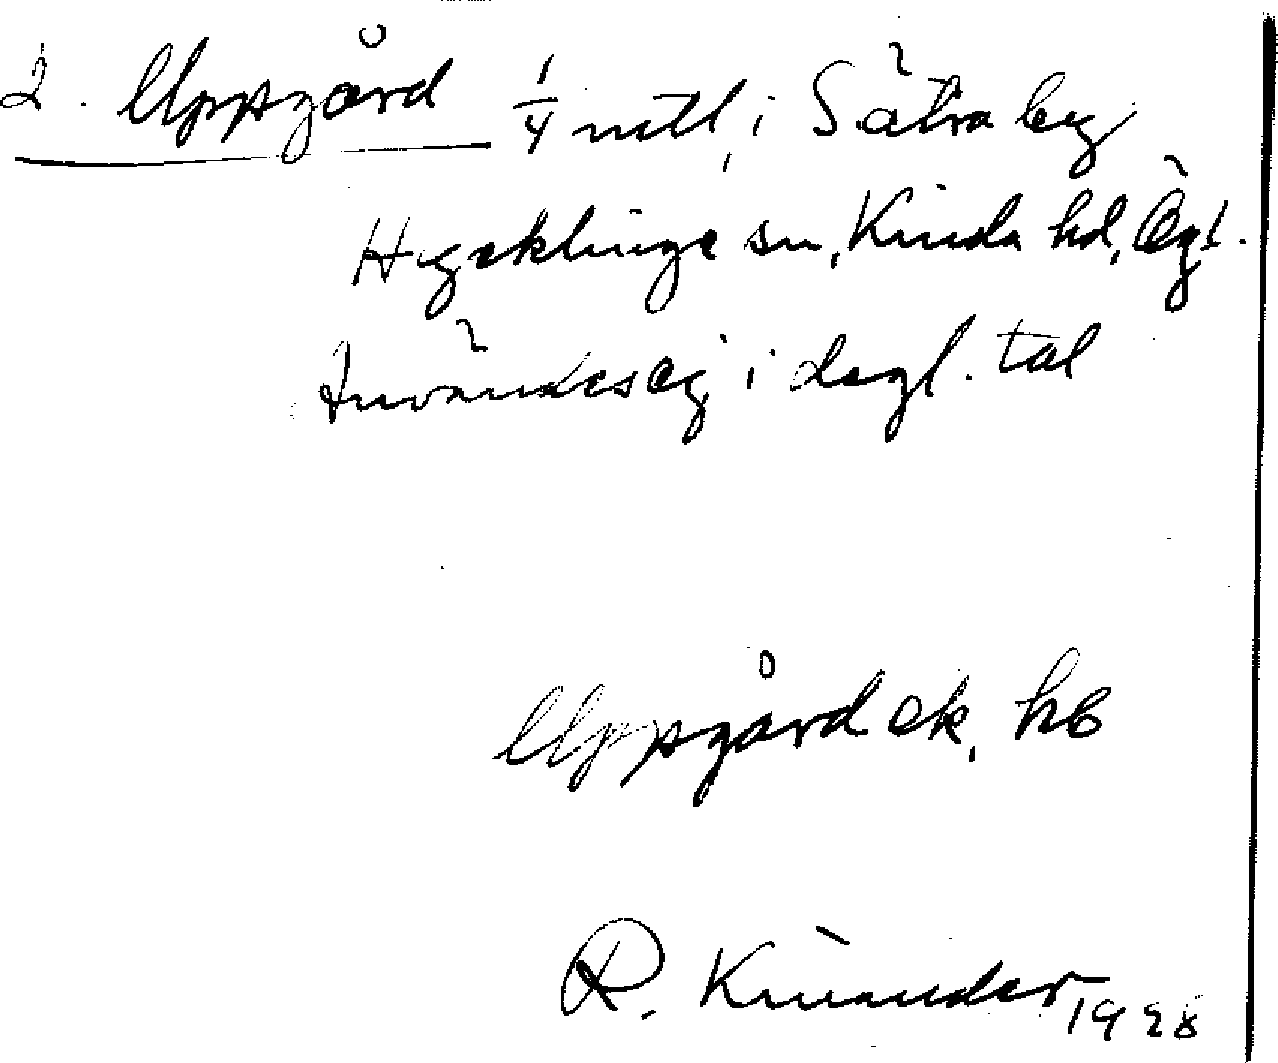 2. Uppgård 1/4 mtl, i Sätra by
Hycklinge sn, Kinda hd, Ögl.
Användes ej i dagl. tal
Uppgård ek, hb
R. Kinander 1928